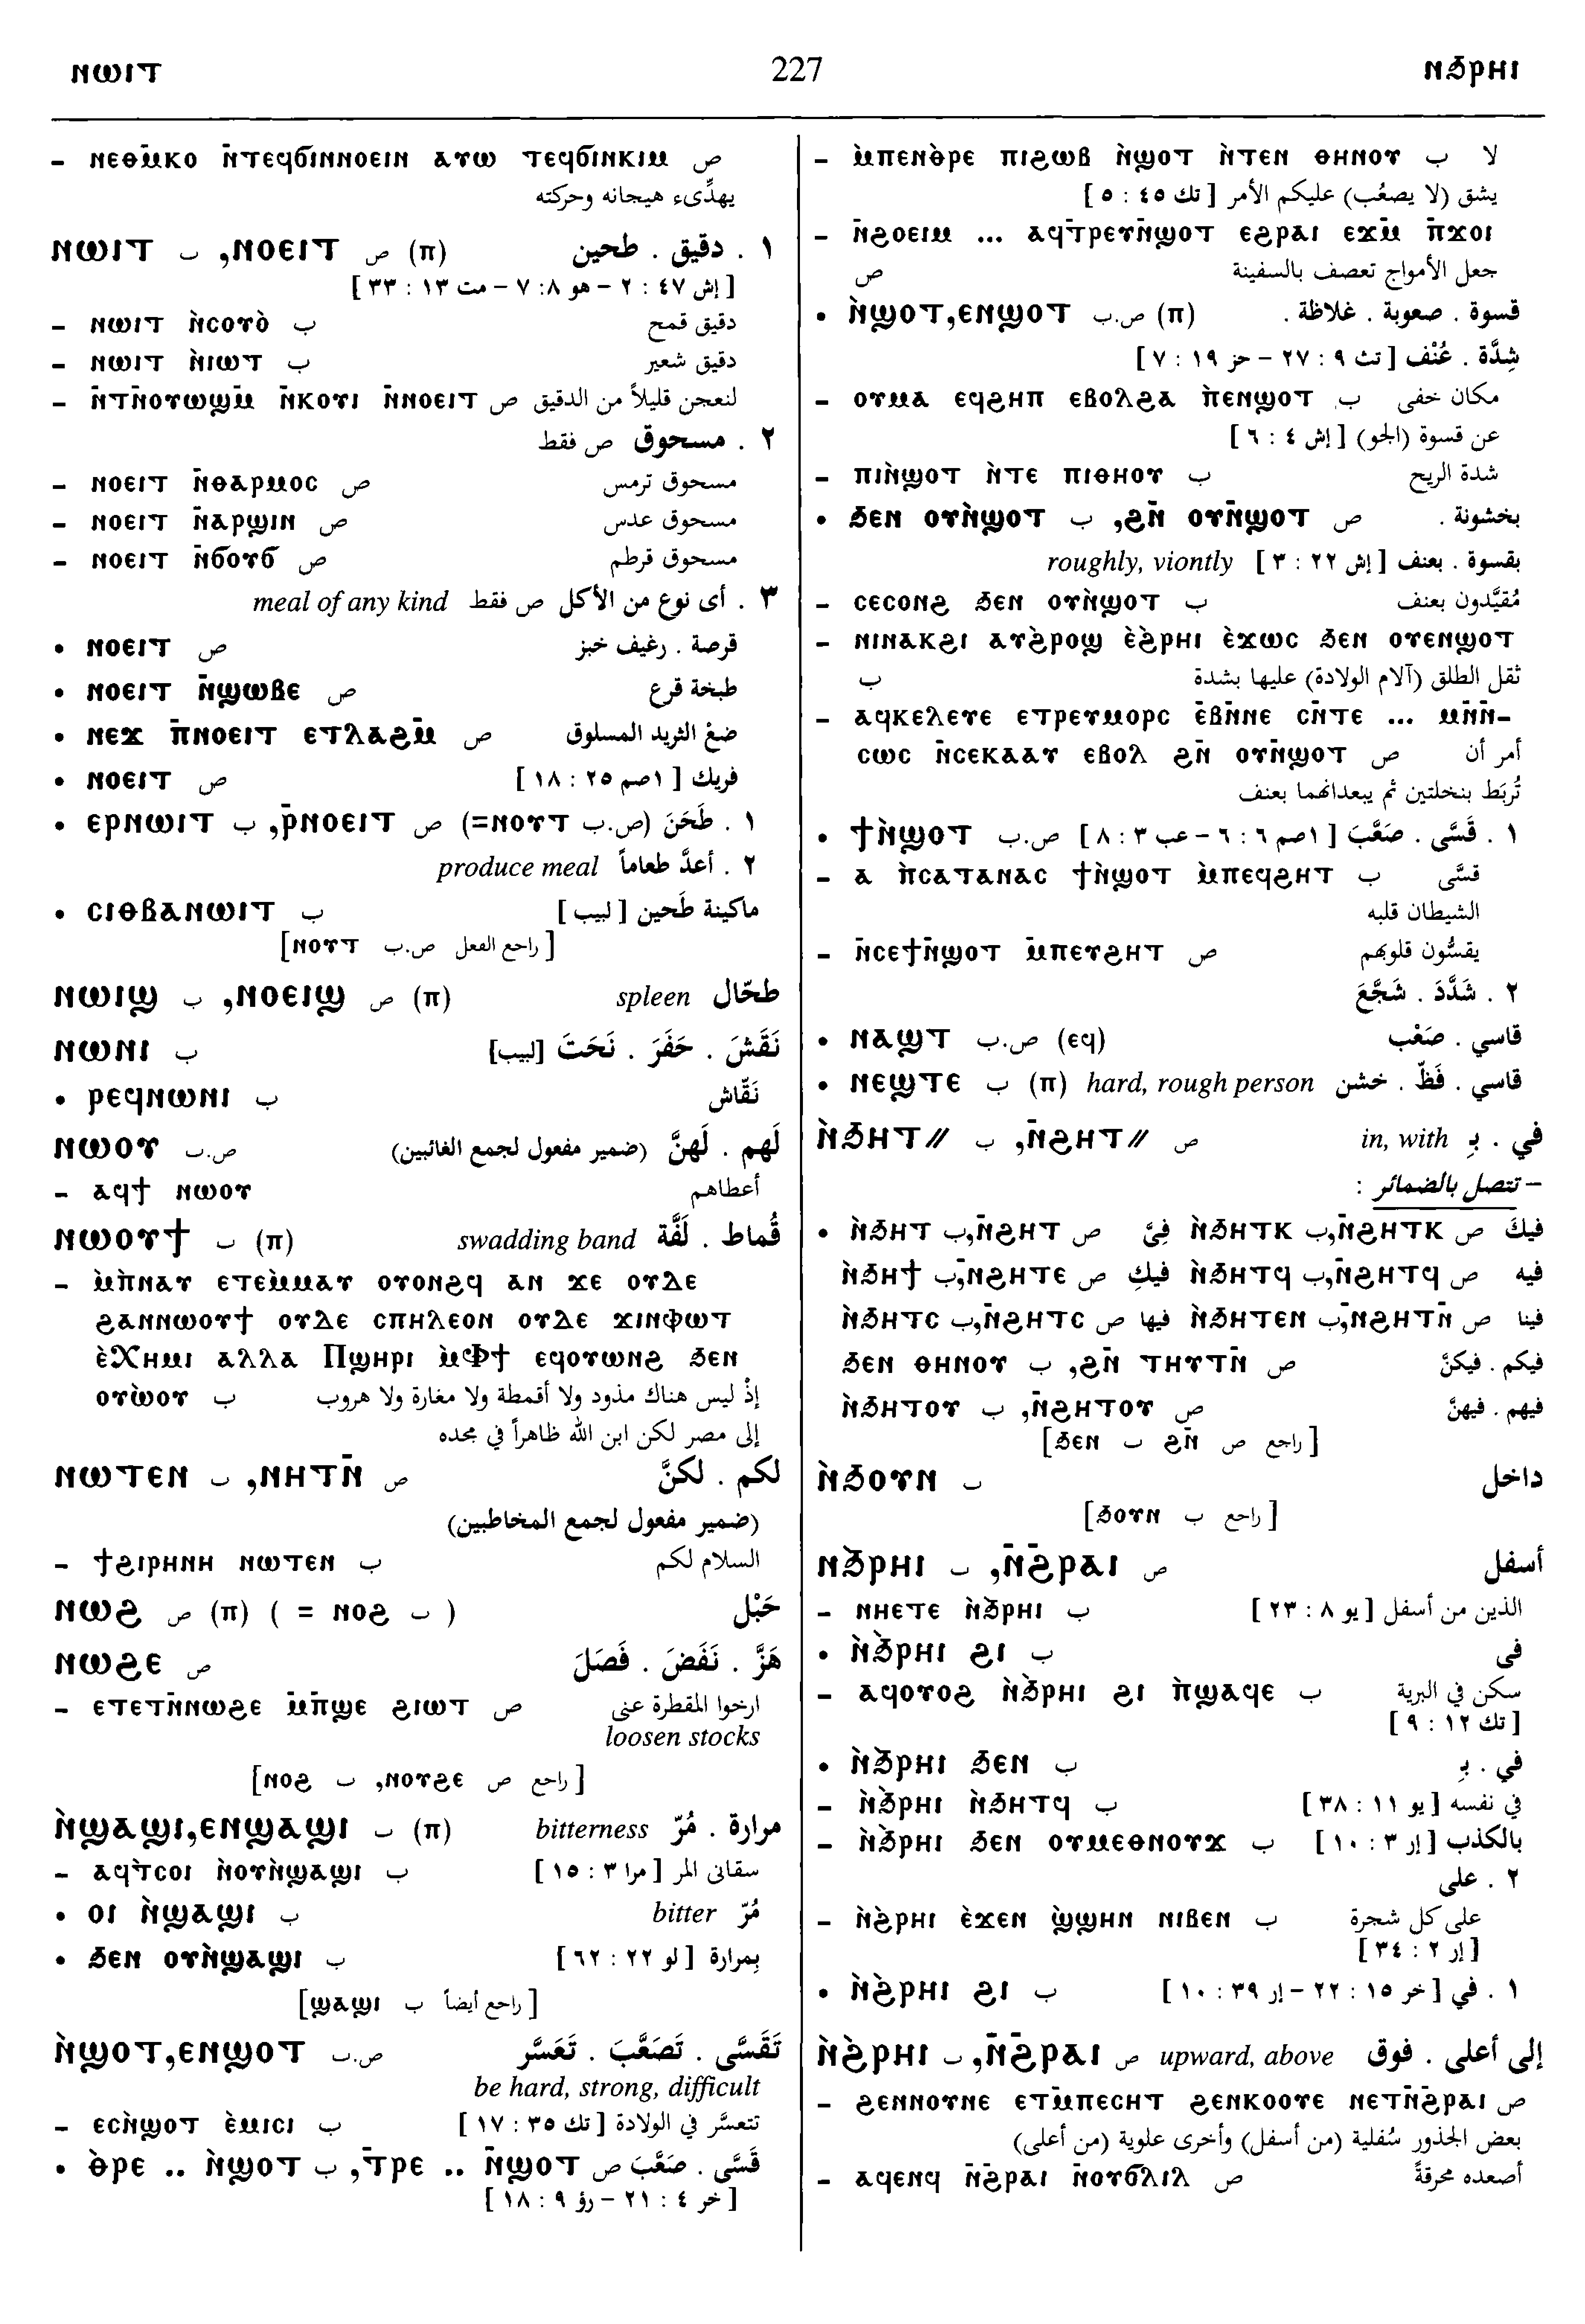 ⲛⲱⲓⲧ 227 ⲛϧ̀ⲣⲏⲓ
– ⲛⲉⲑⲙ̄ⲕⲟ ⲛ̄ⲧⲉϥϭⲓⲛⲛⲟⲉⲓⲛ ⲁⲩⲱ ⲧⲉϥϭⲓⲛⲕⲓⲙ ص
يهدِّىء هيجانه وحركته
ⲛⲱⲓⲧ ب ,ⲛⲟⲉⲓⲧ ص (ⲡ) ١ . دقيق . طحين
[ إش ٤٧ : ٢ – هو ٨: ٧ – مت ١٣ : ٣٣ ]
– ⲛⲱⲓⲧ ⲛ̀ⲥⲟⲩⲟ̀ ب دقيق قمح
– ⲛⲱⲓⲧ ⲛ̀ⲓⲱⲧ ب دقيق شعير
– ⲛ̄ⲧⲛ̄ⲟⲩⲱϣⲙ̄ ⲛ̄ⲕⲟⲩⲓ ⲛ̄ⲛⲟⲉⲓⲧ ص لنعجن قليلاً من الدقيق
٢ . مسحوق ص فقط
– ⲛⲟⲉⲓⲧ ⲛ̄ⲑⲁⲣⲙⲟⲥ ص مسحوق ترمس
– ⲛⲟⲉⲓⲧ ⲛ̄ⲁⲣϣⲓⲛ ص مسحوق عدس
– ⲛⲟⲉⲓⲧ ⲛ̄ϭⲟⲩϭ ص مسحوق قرطم
٣ . أى نوع من الأكل ص فقط meal of any kind
• ⲛⲟⲉⲓⲧ ص قرصة . رغيف خبز
• ⲛⲟⲉⲓⲧ ⲛ̄ϣⲱⲃⲉ ص طبخة قرع
• ⲛⲉϫ ⲡ̄ⲛⲟⲉⲓⲧ ⲉⲧⲗⲁϩⲙ̄ ص ضعْ الثريد المسلوق
• ⲛⲟⲉⲓⲧ ص فريك [ ١صم ٢٥ : ١٨ ]
• ⲉⲣⲛⲱⲓⲧ ب ,ⲣ̄ⲛⲟⲉⲓⲧ ص (=ⲛⲟⲩⲧ ص.ب) ١ . طَحَنَ
٢ . أعدَّ طعاماً produce meal
• ⲥⲓⲑⲃⲁⲛⲱⲓⲧ ب ماكينة طَحين [ لبيب ]
[ راجع الفعل ص.ب ⲛⲟⲩⲧ]
ⲛⲱⲓϣ ب ,ⲛⲟⲉⲓϣ ص (ⲡ) spleen طحّال
ⲛⲱⲛⲓ ب نَقَشَ . حَفَرَ . نَحَتَ [لبيب]
• ⲣⲉϥⲛⲱⲛⲓ ب نَقّاش
ⲛⲱⲟⲩ ص.ب لَهم . لَهنَّ (ضمير مفعول لجمع الغائبين)
– ⲁϥϯ ⲛⲱⲟⲩ أعطاهم
ⲛⲱⲟⲩϯ ب (ⲡ) swadding band قُماط . لَفَّة
– ⲙ̀ⲡ̀ⲛⲁⲩ ⲉⲧⲉⲙ̀ⲙⲁⲩ ⲟⲩⲟⲛϩϥ ⲁⲛ ϫⲉ ⲟⲩⲇⲉ
ϩⲁⲛⲛⲱⲟⲩϯ ⲟⲩⲇⲉ ⲥⲡⲏⲗⲉⲟⲛ ⲟⲩⲇⲉ ϫⲓⲛⲫⲱⲧ
ⲉ̀Ⲭⲏⲙⲓ ⲁⲗⲗⲁ Ⲡϣⲏⲣⲓ ⲙ̀Ⲫϯ ⲉϥⲟⲩⲱⲛϩ ϧⲉⲛ
ⲟⲩⲱ̀ⲟⲩ ب إذْ ليس هناك مذود ولا أقمطة ولا مغارة ولا هروب
إلى مصر لكن ابن الله ظاهراً في مجده
ⲛⲱⲧⲉⲛ ب ,ⲛⲏⲧⲛ̄ ص لكم . لكنَّ
(ضمير مفعول لجمع المخاطبين)
– ϯϩⲓⲣⲏⲛⲏ ⲛⲱⲧⲉⲛ ب السلام لكم
ⲛⲱϩ ص (ⲡ) ( = ⲛⲟϩ ب ) حَبْل
ⲛⲱϩⲉ ص هَزَّ . نَفَضَ . فَصَلَ
– ⲉⲧⲉⲧⲛ̄ⲛⲱϩⲉ ⲙ̄ⲡ̄ϣⲉ ϩⲓⲱⲧ ص ارخوا المقطرة عنى
loosen stocks
[ راجع ص ⲛⲟⲩϩⲉ, ب ⲛⲟϩ]
ⲛ̀ϣⲁϣⲓ,ⲉⲛϣⲁϣⲓ ب (ⲡ) bitterness مرارة . مُرّ
– ⲁϥⲧ̀ⲥⲟⲓ ⲛ̀ⲟⲩⲛ̀ϣⲁϣⲓ ب سقانى المر [ مرا ٣ : ١٥ ]
• ⲟⲓ ⲛ̀ϣⲁϣⲓ ب bitter مُرّ
• ϧⲉⲛ ⲟⲩⲛ̀ϣⲁϣⲓ ب بمرارة [ لو ٢٢ : ٦٢ ]
[ راجع أيضاً ب ϣⲁϣⲓ]
ⲛ̀ϣⲟⲧ,ⲉⲛϣⲟⲧ ص.ب تَقَسَّى . تَصَعَّبَ . تَعَسَّر
be hard, strong, difficult
– ⲉⲥⲛ̀ϣⲟⲧ ⲉ̀ⲙⲓⲥⲓ ب تتعسَّر في الولادة [ تك ٣٥ : ١٧ ]
• ⲑ̀ⲣⲉ .. ⲛ̀ϣⲟⲧ ب ,ⲧ̄ⲣⲉ .. ⲛ̄ϣⲟⲧ ص قَسَّى . صَعَّبَ
[ خر ٤ : ٢١ – رؤ ٩ : ١٨ ]
– ⲙ̀ⲡⲉⲛⲑ̀ⲣⲉ ⲡⲓϩⲱⲃ ⲛ̀ϣⲟⲧ ⲛ̀ⲧⲉⲛ ⲑⲏⲛⲟⲩ ب لا
يشق (لا يصعُب) عليكم الأمر [ تك ٤٥ : ٥ ]
– ⲛ̄ϩⲟⲉⲓⲙ ... ⲁϥⲧ̄ⲣⲉⲩⲛ̄ϣⲟⲧ ⲉϩⲣⲁⲓ ⲉϫⲙ̄ ⲡ̄ϫⲟⲓ
ص جعل الأمواج تعصف بالسفينة
• ⲛ̀ϣⲟⲧ,ⲉⲛϣⲟⲧ ص.ب (ⲡ) قسوة . صعوبة . غلاظة .
شِدَّة . عُنْف [ تث ٩ : ٢٧ – حز ١٩ : ٧ ]
– ⲟⲩⲙⲁ ⲉϥϩⲏⲡ ⲉⲃⲟⲗϩⲁ ⲡ̀ⲉⲛϣⲟⲧ ب مكان خفى
عن قسوة (الجو) [ إش ٤ : ٦ ]
– ⲡⲓⲛ̀ϣⲟⲧ ⲛ̀ⲧⲉ ⲡⲓⲑⲏⲟⲩ ب شدة الريح
• ϧⲉⲛ ⲟⲩⲛ̀ϣⲟⲧ ب ,ϩⲛ̄ ⲟⲩⲛ̄ϣⲟⲧ ص بخشونة .
بقسوة . بعنف [ إش ٢٢ : ٣ ] roughly, viontly
– ⲥⲉⲥⲟⲛϩ ϧⲉⲛ ⲟⲩⲛ̀ϣⲟⲧ ب مُقيَّدون بعنف
– ⲛⲓⲛⲁⲕϩⲓ ⲁⲩϩ̀ⲣⲟϣ ⲉ̀ϩ̀ⲣⲏⲓ ⲉ̀ϫⲱⲥ ϧⲉⲛ ⲟⲩⲉⲛϣⲟⲧ
ب ثقل الطلق (آلام الولادة) عليها بشدة
– ⲁϥⲕⲉⲗⲉⲩⲉ ⲉⲧⲣⲉⲩⲙⲟⲣⲥ ⲉ̄ⲃⲛ̄ⲛⲉ ⲥⲛ̄ⲧⲉ ... ⲙⲛ̄ⲛ̄-
ⲥⲱⲥ ⲛ̄ⲥⲉⲕⲁⲁⲩ ⲉⲃⲟⲗ ϩⲛ̄ ⲟⲩⲛ̄ϣⲟⲧ ص أمر أن
تُربَط بنخلتين ثم يبعدانهما بعنف
• ϯⲛ̀ϣⲟⲧ ص.ب ١ . قَسَّى . صَعَّبَ [ ١صم ٦ : ٦ – عب ٣ : ٨ ]
– ⲁ ⲡ̀ⲥⲁⲧⲁⲛⲁⲥ ϯⲛ̀ϣⲟⲧ ⲙ̀ⲡⲉϥϩⲏⲧ ب قسَّى
الشيطان قلبه
– ⲛ̄ⲥⲉϯⲛ̄ϣⲟⲧ ⲙ̄ⲡⲉⲩϩⲏⲧ ص يقسُّون قلوبهم
٢ . شَدَّدَ . شَجَّعَ
• ⲛⲁϣⲧ ص.ب (ⲉϥ) قاسي . صَعْب
• ⲛⲉϣⲧⲉ ب (ⲡ) hard, rough person قاسي . فَظّ . خشن
ⲛ̀ϧⲏⲧ// ب ,ⲛ̄ϩⲏⲧ// ص in, with في . بِـ
– تتصل بالضمائر :
• ⲛ̀ϧⲏⲧ ب,ⲛ̄ϩⲏⲧ ص فِىَّ ⲛ̀ϧⲏⲧⲕ ب,ⲛ̄ϩⲏⲧⲕ ص فيكَ
ⲛ̀ϧⲏϯ ب,ⲛ̄ϩⲏⲧⲉ ص فيكِ ⲛ̀ϧⲏⲧϥ ب,ⲛ̄ϩⲏⲧϥ ص فيه
ⲛ̀ϧⲏⲧⲥ ب,ⲛ̄ϩⲏⲧⲥ ص فيها ⲛ̀ϧⲏⲧⲉⲛ ب,ⲛ̄ϩⲏⲧⲛ̄ ص فينا
ϧⲉⲛ ⲑⲏⲛⲟⲩ ب ,ϩⲛ̄ ⲧⲏⲩⲧⲛ̄ ص فيكم . فيكنَّ
ⲛ̀ϧⲏⲧⲟⲩ ب ,ⲛ̄ϩⲏⲧⲟⲩ ص فيهم . فيهنَّ
[ راجع ص ϩⲛ̄ ب ϧⲉⲛ]
ⲛ̀ϧⲟⲩⲛ ب داخل
[ راجع ب ϧⲟⲩⲛ]
ⲛϧ̀ⲣⲏⲓ ب ,ⲛ̄ϩ̄ⲣⲁⲓ ص أسفل
– ⲛⲏⲉⲧⲉ ⲛ̀ϧ̀ⲣⲏⲓ ب الذين من أسفل [ يو ٨ : ٢٣ ]
• ⲛ̀ϧ̀ⲣⲏⲓ ϩⲓ ب فى
– ⲁϥⲟⲩⲟϩ ⲛ̀ϧ̀ⲣⲏⲓ ϩⲓ ⲡ̀ϣⲁϥⲉ ب سكن في البرية
[ تك ١٢ : ٩ ]
• ⲛ̀ϧ̀ⲣⲏⲓ ϧⲉⲛ ب في . بِـ
– ⲛ̀ϧ̀ⲣⲏⲓ ⲛ̀ϧⲏⲧϥ ب في نفسه [ يو ١١ : ٣٨ ]
– ⲛ̀ϧ̀ⲣⲏⲓ ϧⲉⲛ ⲟⲩⲙⲉⲑⲛⲟⲩϫ ب بالكذب [ إر ٣ : ١٠ ]
٢ . على
– ⲛ̀ϩ̀ⲣⲏⲓ ⲉ̀ϫⲉⲛ ϣ̀ϣⲏⲛ ⲛⲓⲃⲉⲛ ب على كل شجرة
[ إر ٢ : ٣٤ ]
• ⲛ̀ϩ̀ⲣⲏⲓ ϩⲓ ب ١ . في [ خر ١٥ : ٢٢ – إر ٣٩ : ١٠ ]
ⲛ̀ϩ̀ⲣⲏⲓ ب ,ⲛ̄ϩ̄ⲣⲁⲓ ص upward, above إلى أعلى . فوق
– ϩⲉⲛⲛⲟⲩⲛⲉ ⲉⲧⲙ̄ⲡⲉⲥⲏⲧ ϩⲉⲛⲕⲟⲟⲩⲉ ⲛⲉⲧⲛ̄ϩ̄ⲣⲁⲓ ص
بعض الجذور سُفلية (من أسفل) وأخرى علوية (من أعلى)
– ⲁϥⲉⲛϥ ⲛ̄ϩ̄ⲣⲁⲓ ⲛ̄ⲟⲩϭⲗⲓⲗ ص أصعده محرقةً